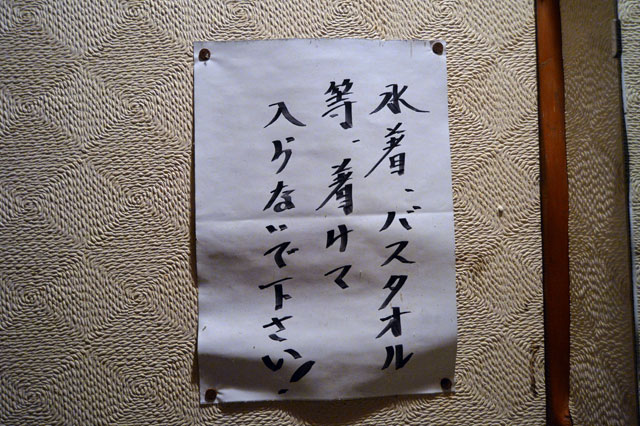 水着、バスタオル
等、着けて
入らないで下さい!